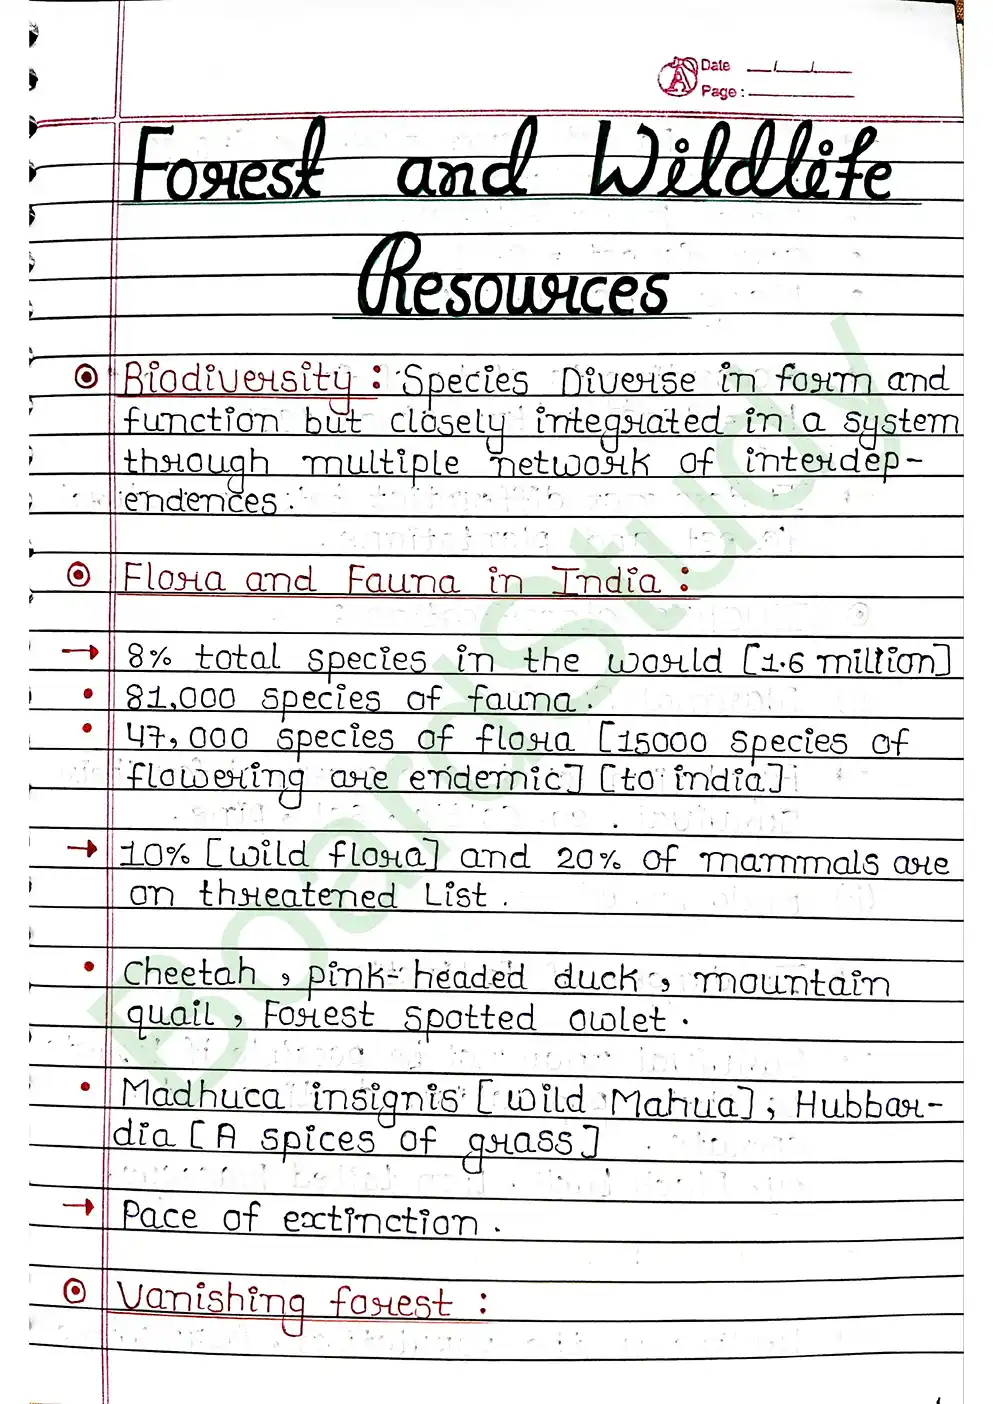 Date __/__/__
Page: ______
Forest and Wildlife
Resources
Biodiversity : Species Diverse in form and
function but closely integrated in a system
through multiple network of interdep-
endences.
Flora and Fauna in India :
→ 8% total species in the world [1.6 million]
• 81,000 species of fauna.
• 47,000 species of flora [15000 species of
flowering are endemic] [to india]
→ 10% [wild flora] and 20% of mammals are
on threatened List.
• Cheetah, pink-headed duck, mountain
quail, Forest spotted owlet.
• Madhuca insignis [wild Mahua], Hubbar-
dia [A spices of grass]
→ Pace of extinction.
Vanishing forest :
BoardStudy